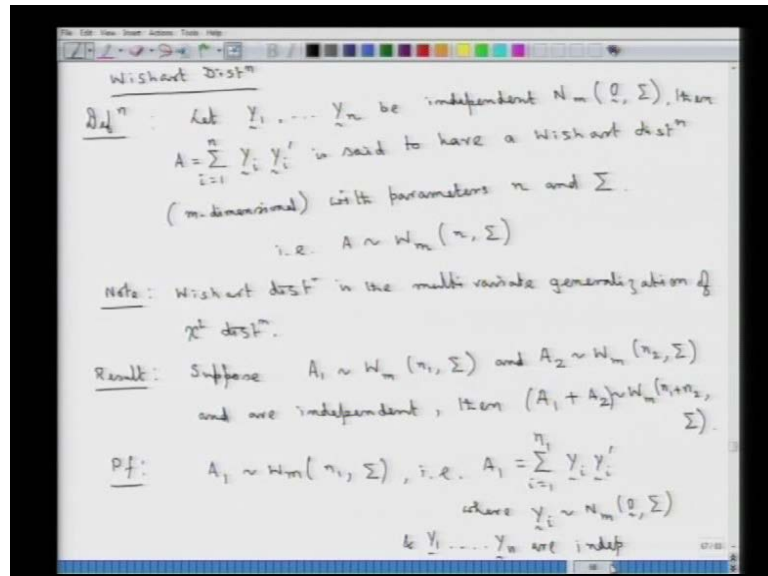 File Edit View Insert Actions Tools Help
Wishart Distⁿ
Defⁿ : Let Y₁, .... Yₙ be independent Nₘ(0, Σ), then
A = Σᵢ₌₁ⁿ Yᵢ Yᵢ' is said to have a Wishart distⁿ
(m-dimensional) with parameters n and Σ.
i.e. A ~ Wₘ(n, Σ)
Note : Wishart distⁿ is the multivariate generalization of
χ² distⁿ.
Result : Suppose A₁ ~ Wₘ(n₁, Σ) and A₂ ~ Wₘ(n₂, Σ)
and are independent, then (A₁ + A₂) ~ Wₘ(n₁+n₂,
Σ).
Pf : A₁ ~ Wₘ(n₁, Σ), i.e. A₁ = Σᵢ₌₁ⁿ¹ Yᵢ Yᵢ'
where Yᵢ ~ Nₘ(0, Σ)
& Y₁ .... Yₙ are indep